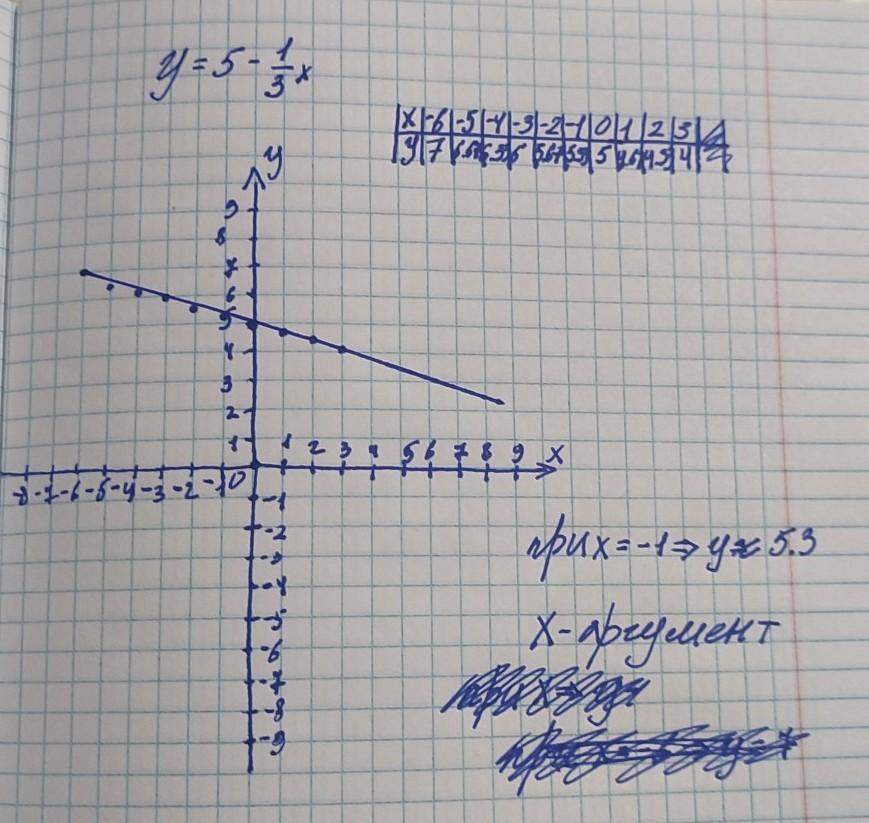 y = 5 - 1/3 x
x -6 -5 -4 -3 -2 -1 0 1 2 3
y 7 6.6 6.3 6 5.67 5.3 5 4.6 4.3 4
y
9
8
7
6
5
4
3
2
1
1 2 3 4 5 6 7 8 9 x
-8 -7 -6 -5 -4 -3 -2 -1 0
-1
-2
-3
-4
-5
-6
-7
-8
-9
при x = -1 ⇒ y ≈ 5.3
X - аргумент